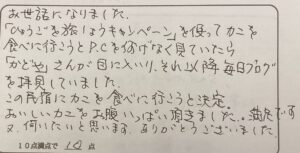 お世話になりました.
「ひょうごを旅しようキャンペーン」を使ってカニを
食べに行こうとP.Cを何げなく見ていたら
「かどや」さんが目に入り、それ以降毎日ブログ
を拝見していました.
この民宿にカニを食べに行こうと決定.
おいしいカニをお腹いっぱい頂きました. 満足です
又、伺いたいと思います. ありがとうございました.
10点満点で 10 点